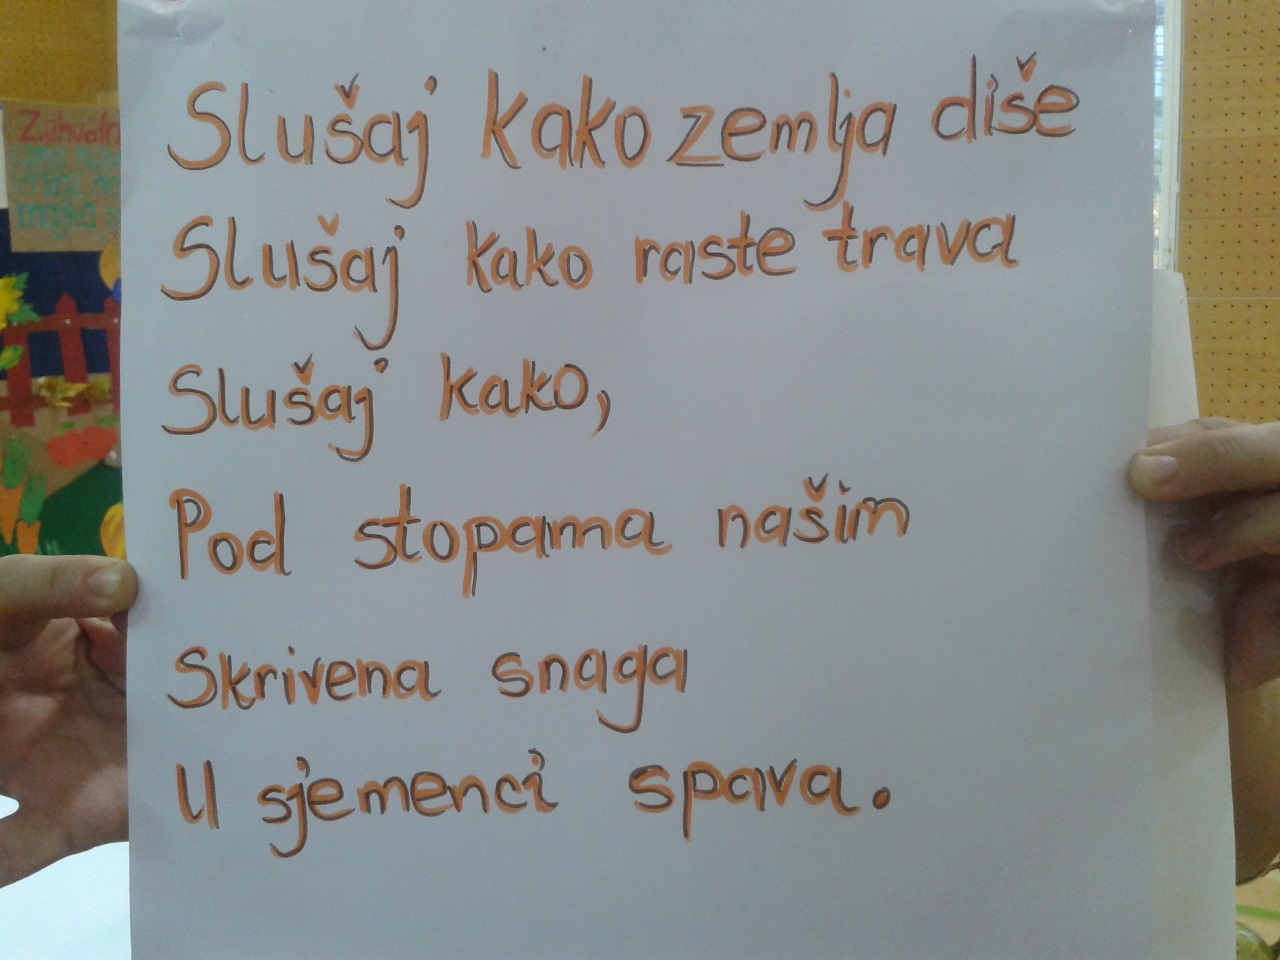 Slušaj kako zemlja diše
Slušaj kako raste trava
Slušaj kako,
Pod stopama našim
Skrivena snaga
U sjemenci spava.